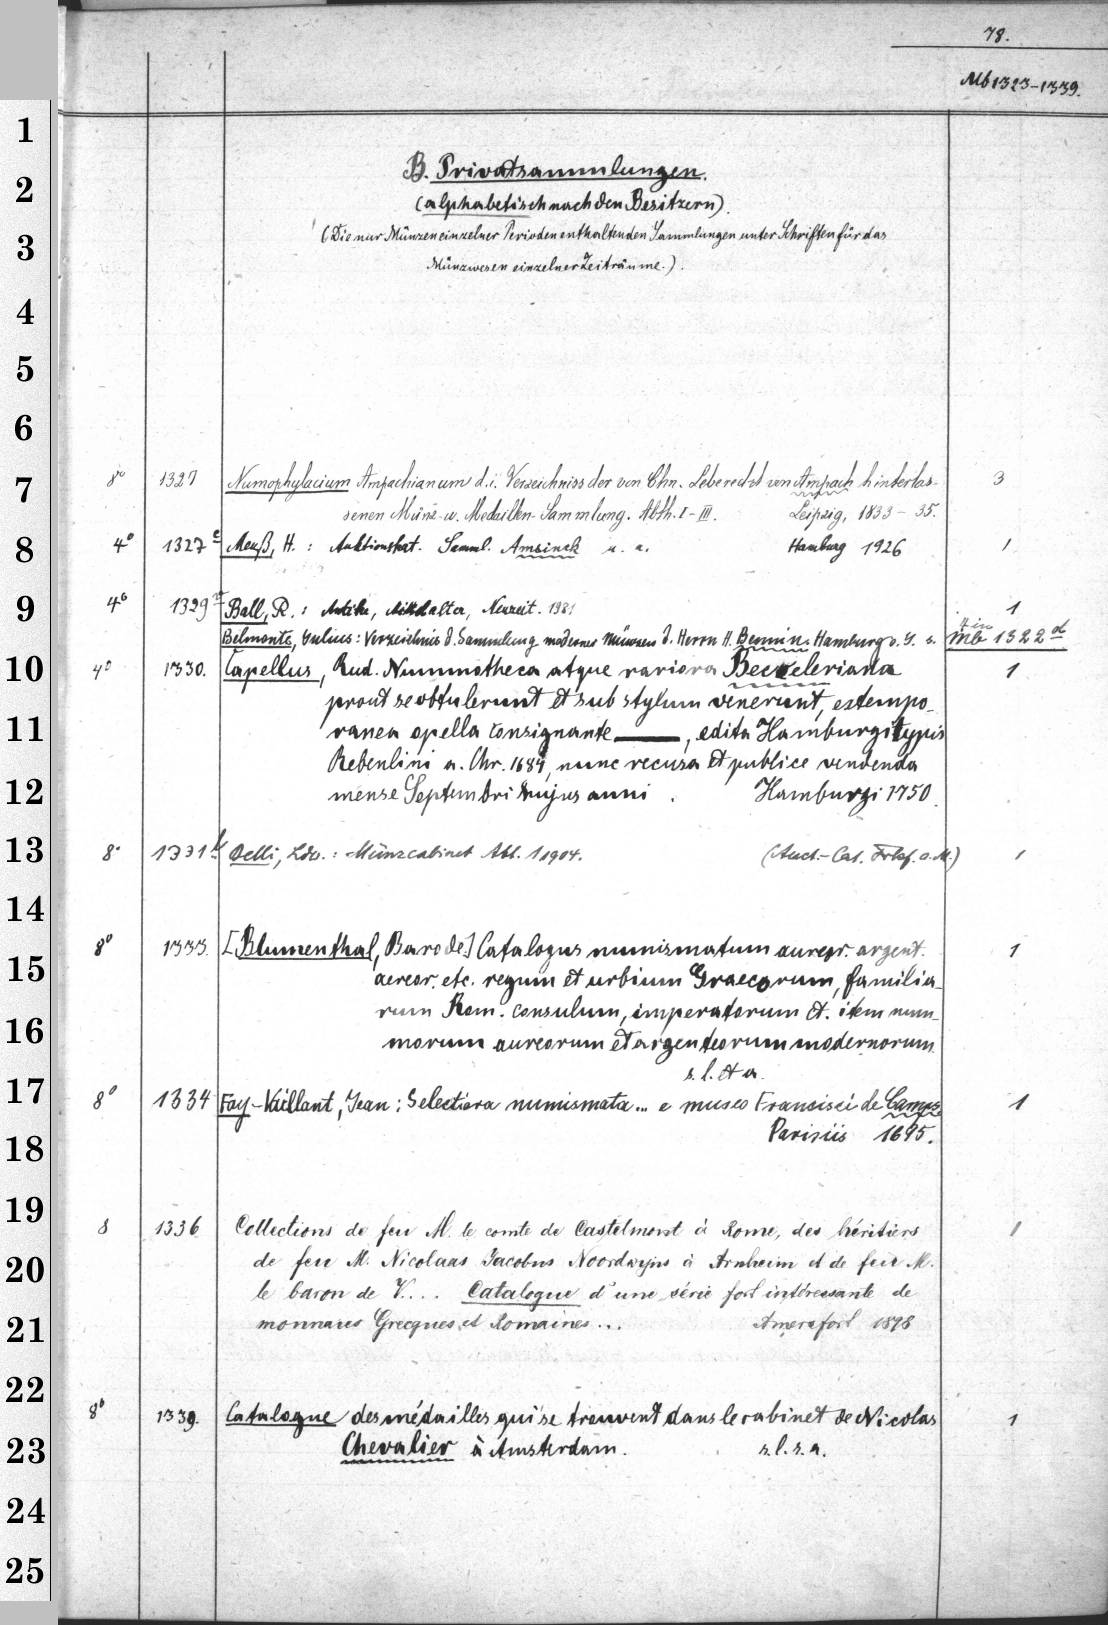 78.
Mb 1323-1339.
B. Privatsammlungen.
(alphabetisch nach den Besitzern).
(Die nur Münzen einzelner Perioden enthaltenden Sammlungen unter Schriften für das
Münzwesen einzelner Zeiträume.).
8° 1327 Numophylacium Ampachianum d. i. Verzeichniss der von Chn. Leberecht von Ampach hinterlas- 3
senen Münz- u. Medaillen-Sammlung. Abth. I-III. Leipzig, 1833-35.
4° 1327 e Meuß, H. : Auktionskat. Samml. Amsinck u. a. Hamburg 1926 1
4° 1329 Ball, R. : Antike, Mittelalter, Neuzeit. 1931 1
Belmonte, Julius: Verzeichnis d. Sammlung moderner Münzen d. Herrn H. in Hamburg 4 in Mb 1322 d
4° 1330. Capellus, Rud. Nummotheca atque rariora Beckeleriana 1
prout se obtulerunt et sub stylum venerunt, extempo-
ranea opella consignante ——, edita Hamburgi typis
Rebenlini a. Chr. 1684, nunc recusa et publice vendenda
mense Septembri hujus anni. Hamburgi 1750.
8° 1331 b Belli, Ldw. : Münzcabinet Abt. 1 1904. (Auct.-Cat. Frkf. a. M.) 1
8° 1333. [Blumenthal, Baro de.] Catalogus numismatum aureor. argent. 1
aereor. etc. regum et urbium Graecorum, familia-
rum Rom. consulum, imperatorum et. item num-
morum aureorum et argenteorum modernorum.
s. l. et a.
8° 1334 Foy-Vaillant, Jean : Selectiora numismata... e museo Francisci de Camps 1
Parisiis 1695.
8 1336 Collections de feu M. le comte de Castelmont à Rome, des héritiers 1
de feu M. Nicolaas Jacobus Noordwijns à Arnheim et de feu M.
le baron de V.... Catalogue d'une série fort intéressante de
monnaies Grecques et Romaines... Amersfort 1898
8° 1339. Catalogue des médailles qui se treuvent dans le cabinet de Nicolas 1
Chevalier à Amsterdam. s. l. s. a.
1
2
3
4
5
6
7
8
9
10
11
12
13
14
15
16
17
18
19
20
21
22
23
24
25